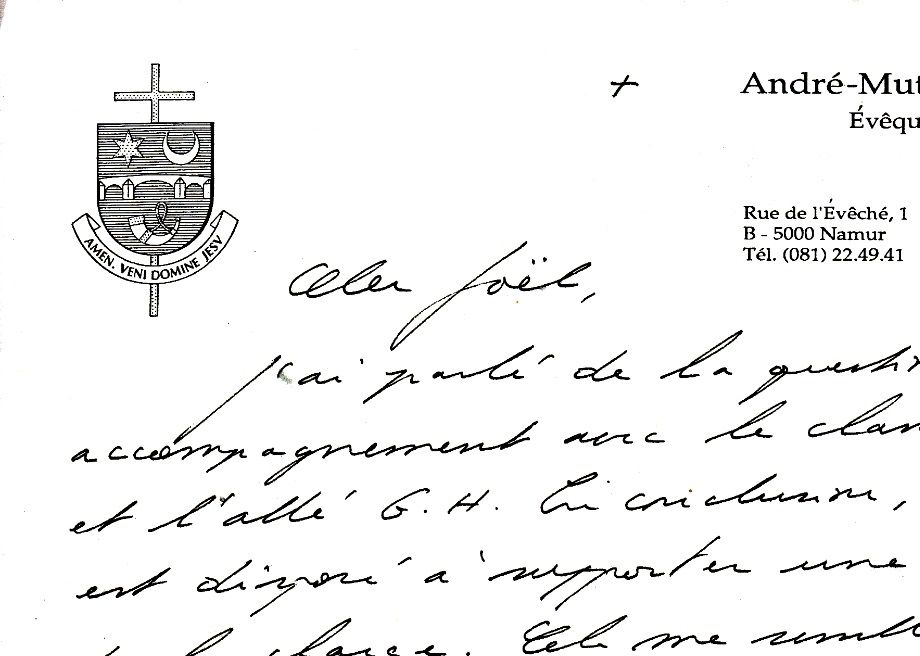 +
André-Mut
Évêqu
Rue de l'Évêché, 1
B - 5000 Namur
Tél. (081) 22.49.41
AMEN. VENI DOMINE JESV
Cher Joël,
J'ai parlé de la questi
accompagnement avec le
et l'abbé G. H. En conclusion,
est disposé à supporter une
Cela me sembl